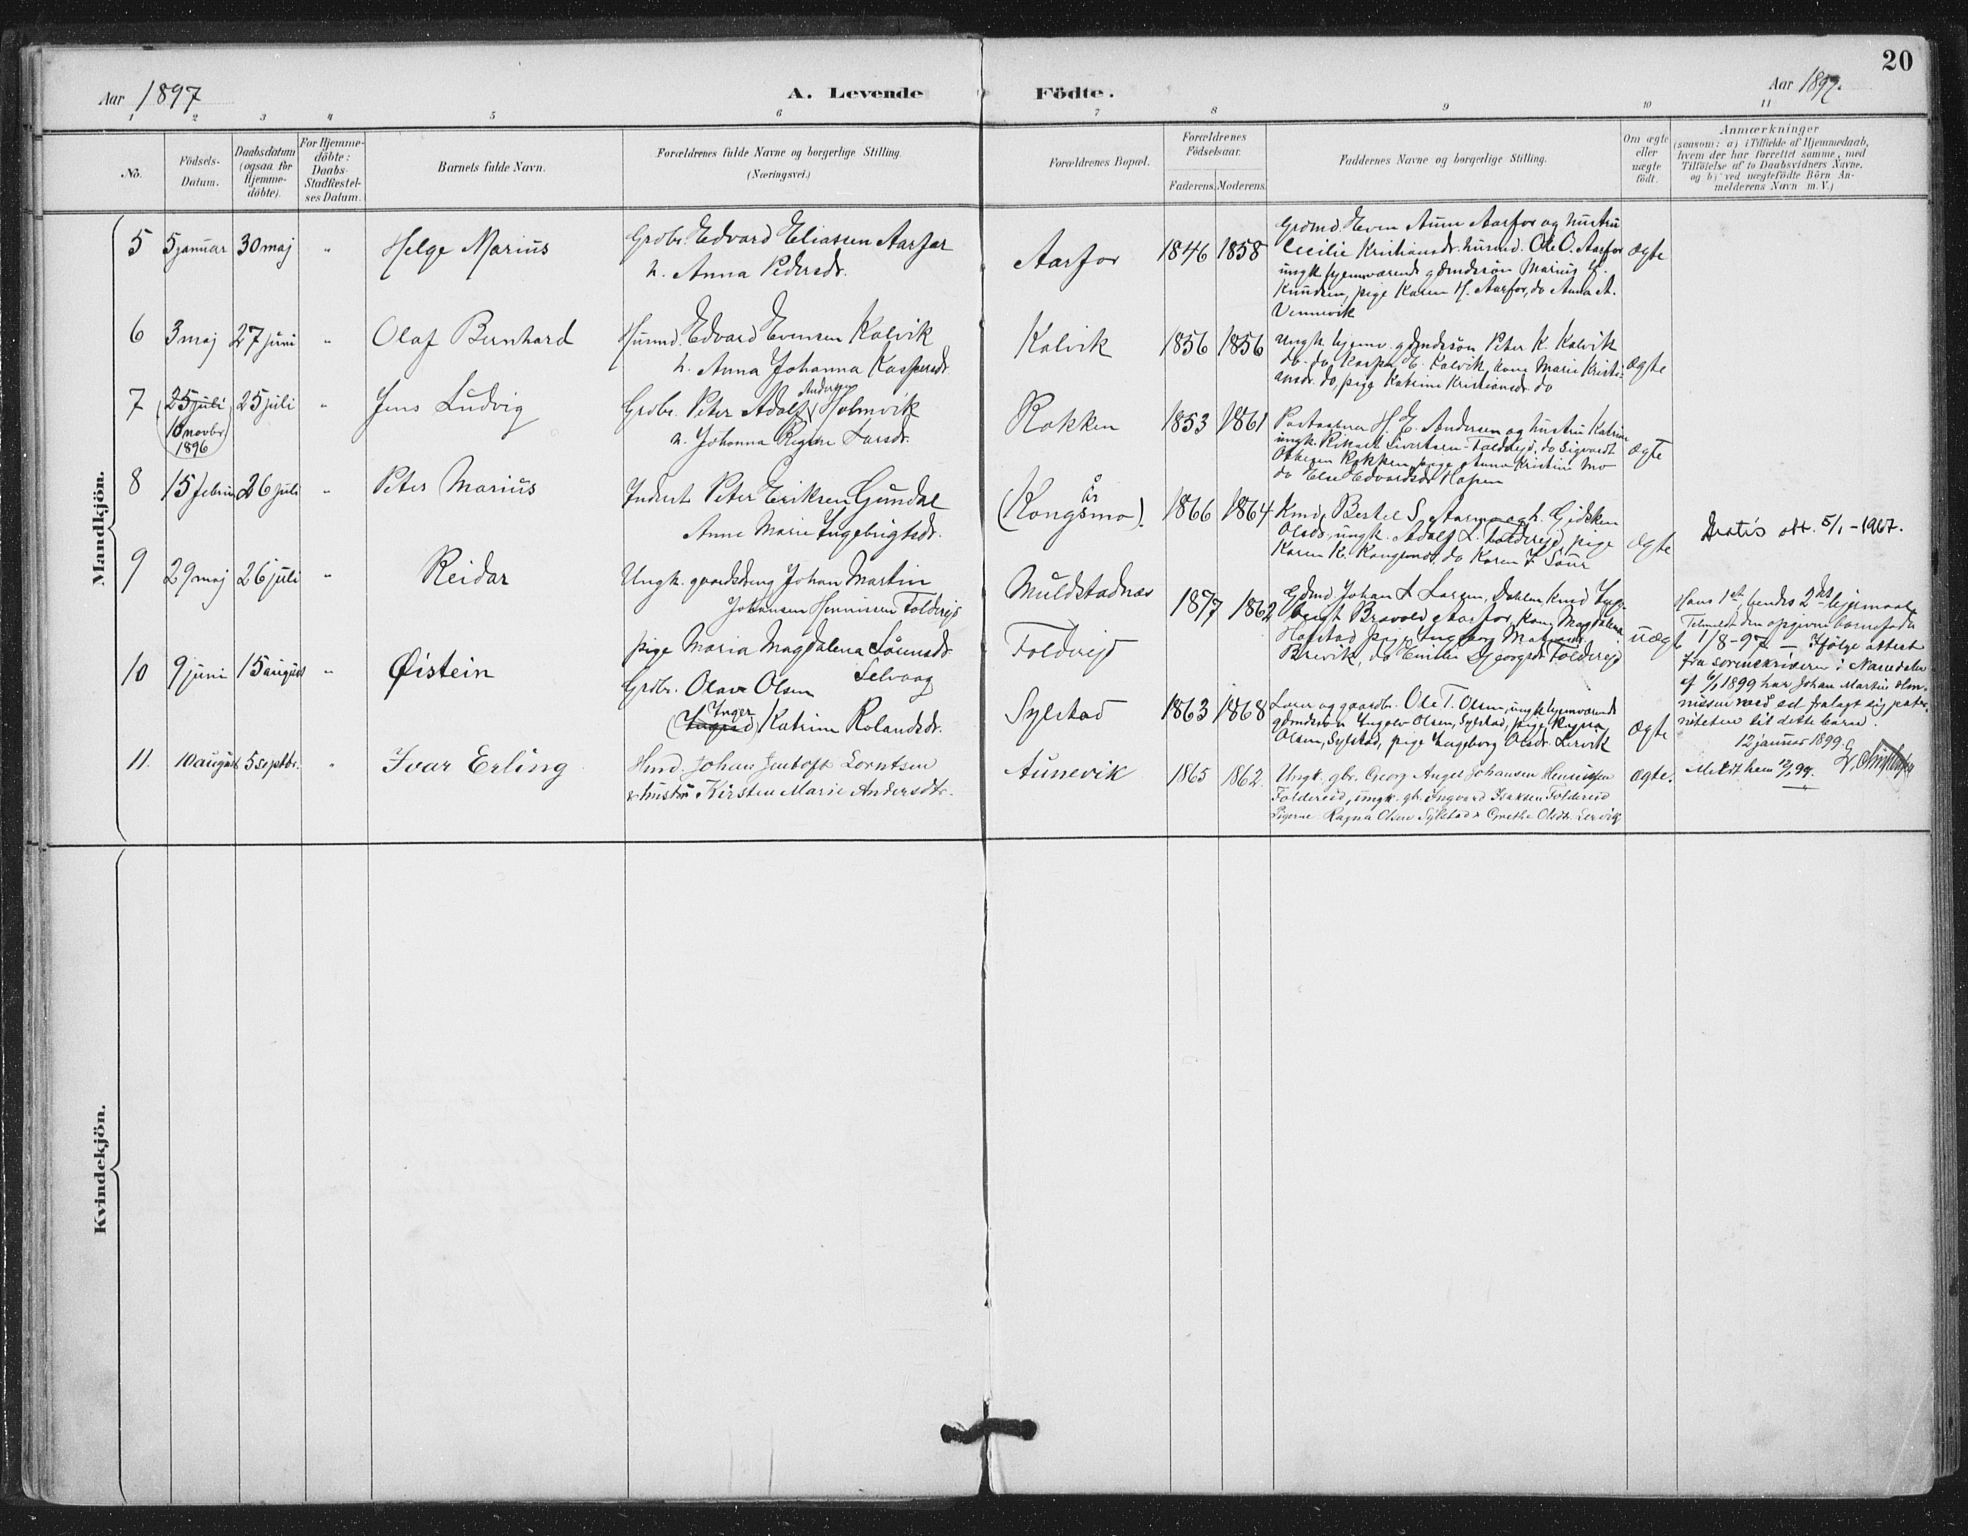 20
Aar 1897
A. Levende Födte.
Aar 1897.
1 2 3 4 5 6 7 8 9 10 11
No.
Födsels-
Datum.
Daabsdatum
(ogsaa for
Hjemme-
döbte).
For Hjemme-
döbte:
Daabs-
Stadfæstel-
ses Datum.
Barnets fulde Navn.
Forældrenes fulde Navne og borgerlige Stilling.
(Næringsvei.)
Forældrenes Bopæl.
Forældrenes
Födselsaar.
Faderens. Moderens.
Faddernes Navne og borgerlige Stilling.
Om ægte
eller
uægte
födt.
Anmærkninger
(saasom: a) i Tilfælde af Hjemmedaab,
hvem der har forrettet samme, med
Tilföielse af to Daabsvidners Navne,
og b) ved uægtefödte Börn An-
melderens Navn m. V.)
Mandkjön.
5 5 januar 30 maj " Helge Marius
Grdbr. Edvard Eliassen Aarfor
h. Anna Pedersdr.
Aarfor 1846 1858
Grdmd. Even Aune Aarfor og hustru
Cecilie Kristiansdr. husmd. Ole O. Aarfor
ungk. hjemværende gdmdssön Marius
Knudsen, pige Karen H. Aarfor, do Anna A.
Vennevik
ægte
6 3 maj 27 juni " Olaf Bernhard
Husmd. Edvard Evensen Kalvik
h. Anna Johanna Kaspersdr.
Kalvik 1856 1856
Ungk. hjemv. gdmdssön Peter K. Kalvik
do. do Kaspar E. Kalvik, kone Marie Kristi-
ansdr. do, pige Katrine Kristiansdr. do
ægte
7 25 juli 25 juli " Jens Ludvig
(10 novbr.
1896)
Andersen
Grdbr. Peter Adolf Holmvik
h. Johanna Regine Larsdr.
Rokken 1853 1861
Postaabner H. E. Andersen og hustru Katrine
ungk. Rikart Sivertsen Foldrejd, do Sigvardt
Rokken, pige Anna Kristine Mo
do Else Edvardsdr. Hopen
ægte
8 15 februar 26 juli " Peter Marius
Inderst Peter Eriksen Grndal
Anne Marie Ingebrigtsdr.
(Kongsmo). 1866 1864
Kmd. Bertel S. Aarmo og h. Gidsken
Olsdr., ungk. Adolf L. Foldrejd, pige
Karen K. Kongsmo, do Karen
ægte
Gratis att. 5/1-1967.
9 29 maj 26 juli " Reidar
Ungk. gaardsdreng Johan Martin
Johansen Henrissen Foldrejd
pige Maria Magdalena Sörensdr.
Selvaag
Muldstadnæs
Foldrejd
1877 1862
Gdmd Johan L. Larsen, Dahlen, kmd Inge-
brigt Bravold, Aarfor, kone Magdalena
Hofstad, pige Ingeborg
Brevik, do Emilie Georgsdr. Foldrejd
uægte
Hans 1ste, hendes 2det lejermaal.
Tilmeldt den opgivne barnefader
1/8-97. — Ifölge attest
fra sorenskriveren i Namdalen
af 6/1 1899 har Johan Martin Hen-
rissen med ed fralagt sig pater-
niteten til dette barn.
12 januar 1899.
Meldt ham 12/1 99.
10 9 juni 15 august " Øistein
Grdbr. Olav Olsen
Inger
(Ingrid) Katrine Rolandsdr.
Sylstad 1863 1868
Lærer og gaardbr. Ole T. Olsen, ungk. hjemværende
gdmdssön Ingolv Olsen, Sylstad, pige Ragna
Olsen, Sylstad, pige Ingeborg Olsdr. Lervik
ægte
11. 10 august 5 septbr. " Ivar Erling
Hmd. Johan Gustaf Lorntsen
& hustru Kirsten Marie Andersdtr.
Aunevik 1865 1862.
Ungk. gbr. Georg Anger Johansen Henrissen
Foldereid, ungk. gbr. Ingvard Isaksen Foldereid
Pigerne Ragna Olsen Sylstad & Grethe Olsdtr. Lervik
ægte.
Kvindekjön.